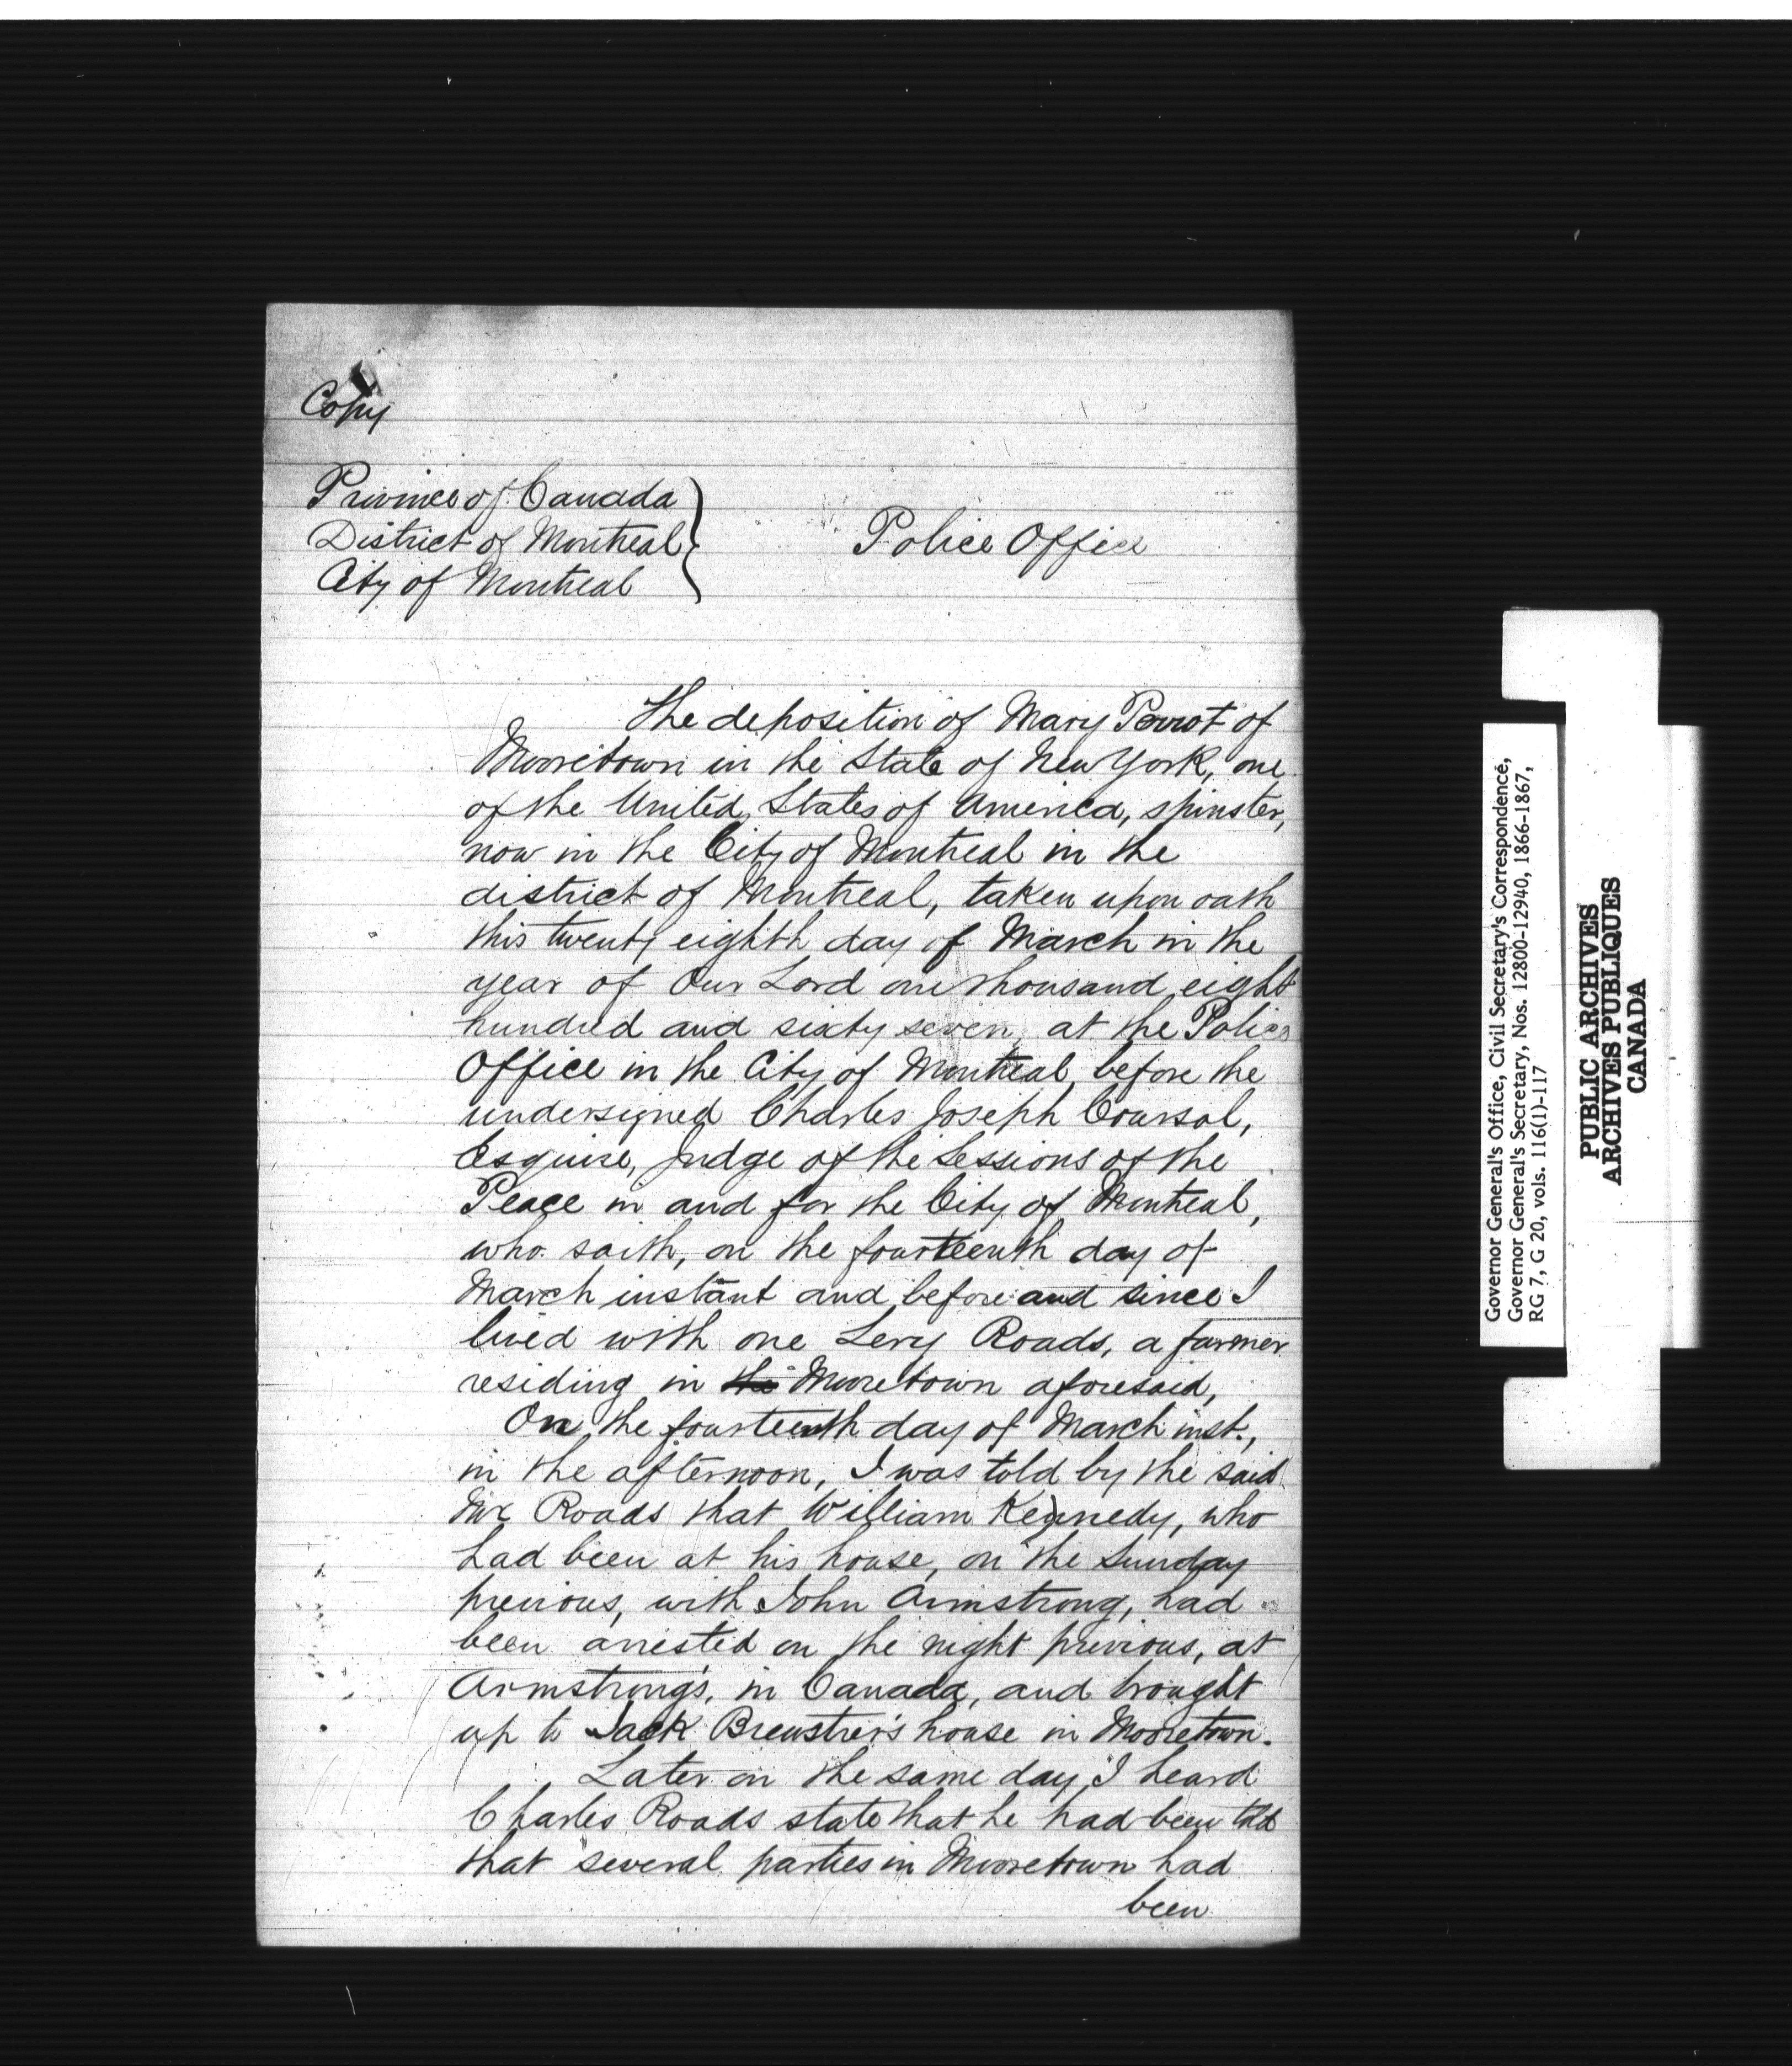 Copy
Province of Canada
District of Montreal
City of Montreal
Police Office
The deposition of Mary Perrot of
Mooretown in the State of New York, one
of the United States of America, spinster,
now in the City of Montreal in the
district of Montreal, taken upon oath
this twenty eighth day of March in the
year of Our Lord one thousand eight
hundred and sixty seven, at the Police
Office in the City of Montreal before the
undersigned Charles Joseph Coursol,
Esquire, Judge of the Sessions of the
Peace in and for the City of Montreal,
who saith, on the fourteenth day of
March instant and before and since I
lived with one Levy Roads, a farmer
residing in the Mooretown aforesaid,
On the fourteenth day of March inst.,
in the afternoon, I was told by the said
Mr Roads that William Kennedy, who
had been at his house, on the Sunday
previous, with John Armstrong, had
been arrested on the night previous, at
Armstrong's, in Canada, and brought
up to Jack Brewster's house in Mooretown.
Later on the same day, I heard
Charles Roads state that he had been told
that several parties in Mooretown had
been
Governor General's Office, Civil Secretary's Correspondence,
Governor General's Secretary, Nos. 12800-12940, 1866-1867,
RG 7, G 20, vols. 116(1)-117
PUBLIC ARCHIVES
ARCHIVES PUBLIQUES
CANADA